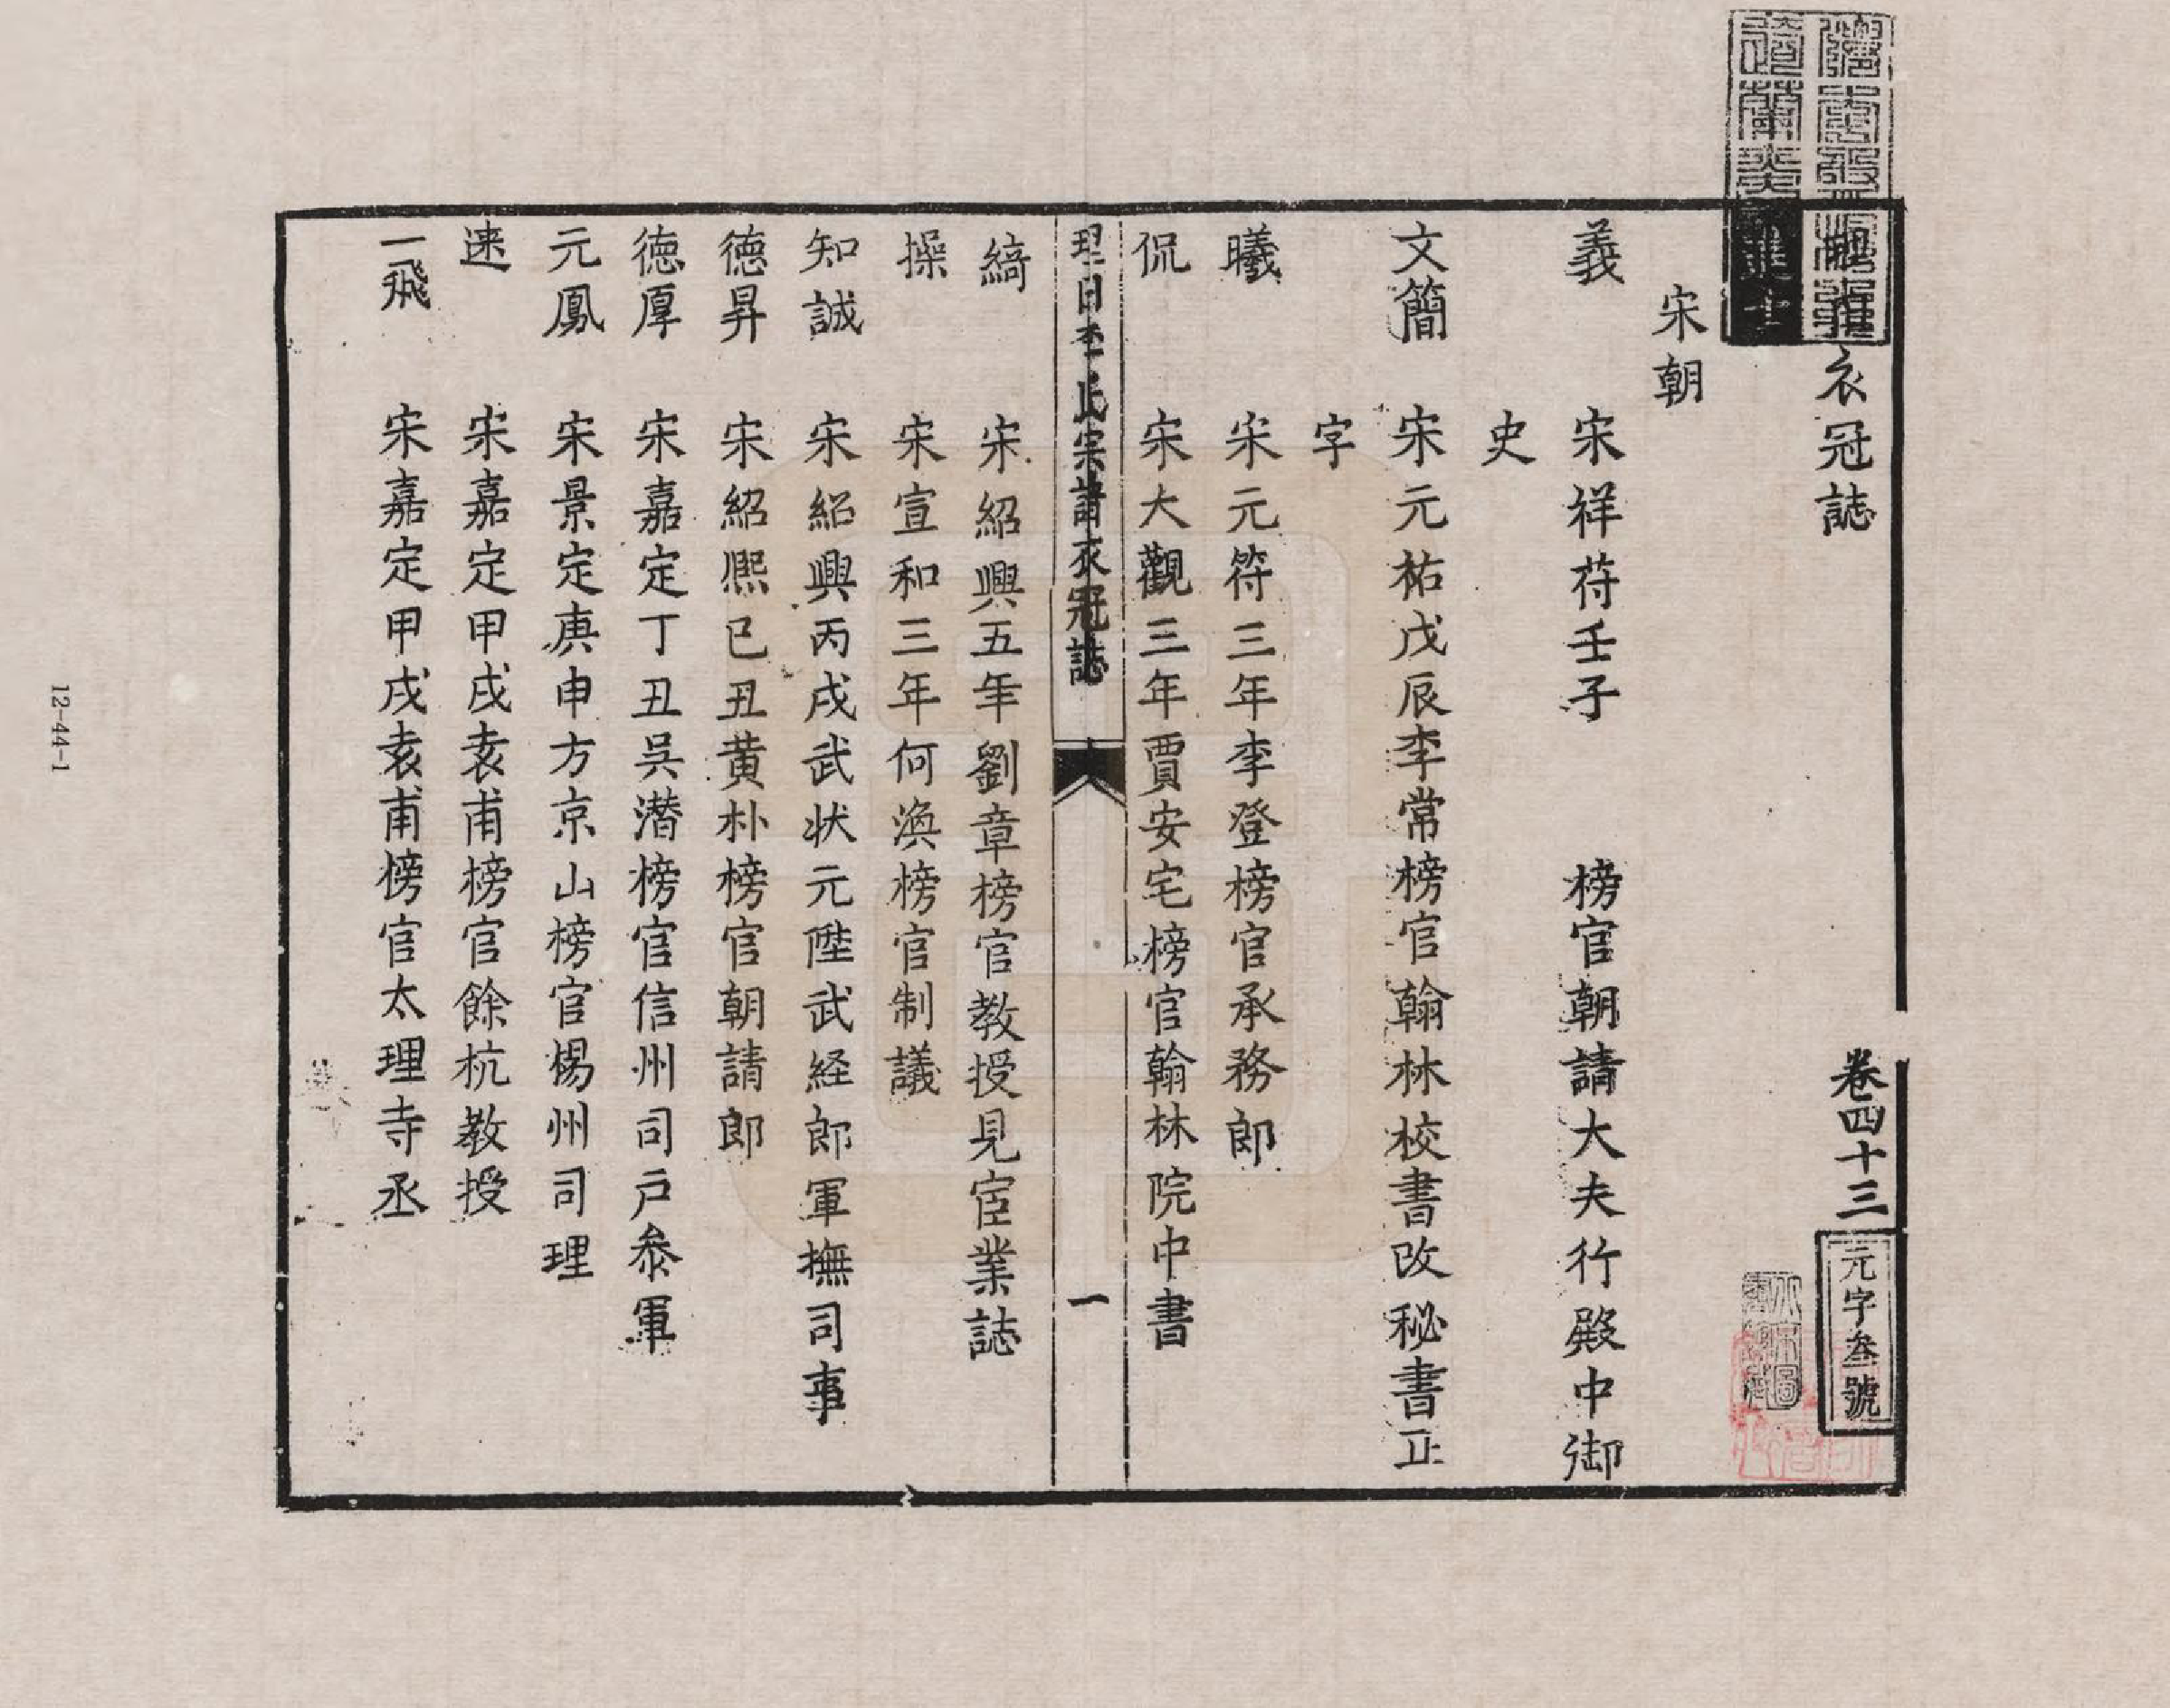 衣冠誌 卷四十三
元字叁號
進士
宋朝
義 宋祥苻壬子 榜官朝請大夫行殿中御
史
文簡 宋元祐戊辰李常榜官翰林校書改秘書正
字
曦 宋元符三年李登榜官承務郎
侃 宋大觀三年賈安宅榜官翰林院中書
理田李氏宗譜衣冠誌 一
綺 宋紹興五年劉章榜官教授見宦業誌
操 宋宣和三年何渙榜官制議
知誠 宋紹興丙戌武状元陞武経郎軍撫司事
德昇 宋紹熈已丑黄朴榜官朝請郎
德厚 宋嘉定丁丑吳潜榜官信州司户叅軍
元鳳 宋景定庚申方京山榜官楊州司理
速 宋嘉定甲戌袁甫榜官餘杭教授
一飛 宋嘉定甲戌袁甫榜官太理寺丞
12-44-1